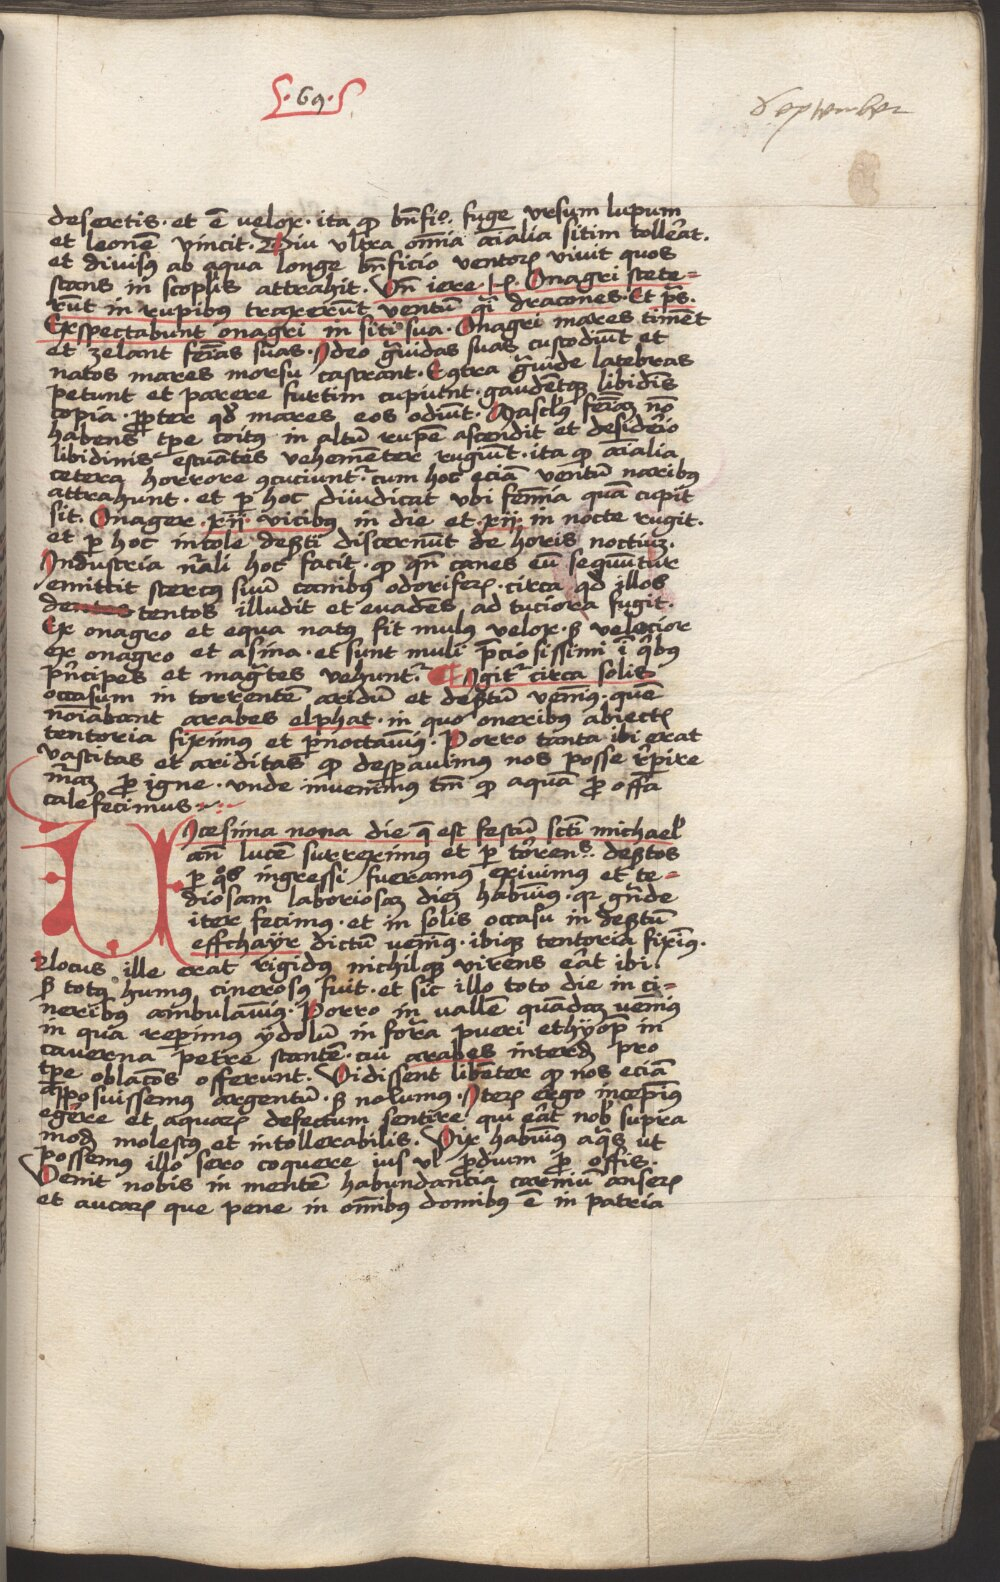 ·69·
September
desertis · et ē velox · ita ꝙ bn̄fiº · fuge vrsum lupum
et leonē vincit · Diu vltra om̄ia aīalia sitim tollerat ·
et divisꝰ ab aqua longe bn̄ficio ventoꝝ vivit quos
stans in scoplis attrahit · Vn̄ iere · Onagri stete=
rūt in rupibus traxerūt ventū q̄i dracones · Et p̄s ·
Exspectabunt onagri in siti sua · Onagri mares timēt
et zelant fēias suas · Ideo gͣuidas suas custodiūt et
natos mares morsu castrant · Eqtra gͣuide latebras
petunt et parere furtim cupiūt · gaudētqꝫ libidīs
copia · ꝓpter qd̕ mares eos odiūt · Masclꝰ fēiaꝫ nō
habens tp̄e coitꝰ in altū rupē ascendit et desiderio
libidinis estuātes vehemēter rugiūt · ita ꝙ aīalia
cetera horrore ꝯcuciunt᷑ · cum hoc eciā ventū naribꝰ
attrahunt · et p̱ hoc diiudicat vbi femīa quā cupit
sit · Onager · xij · vicibꝰ in die et xij · in nocte rugit ·
et p̱ hoc incole deẜti discernūt de horis noctiuꝫ ·
Industria nͣali hoc facit · ꝙ qn̄ canes eū sequūtur
emittit stercꝰ suū canibꝰ odoriferꝝ · circa qd̕ illos
dentes tentos illudit et evadēs ad tuciora fugit ·
Ex onagro et equa natꝰ fit mulꝰ velox · ẜ velocior
ex onagro et asina · et sunt muli p̄ciosissimi ī qͥbꝰ
pͥncipes et magͣtes vehunt᷑ · Igit᷑ circa solis
occasum in torrentē aridū et deẜtū venimꝰ · quē
noīabant arabes elphat · in quo oneribꝰ abiectꝭ
tentoria fiximꝰ et p̱noctauīꝰ · Porro tanta ibi erat
vastitas et ariditas ꝙ despauimꝰ nos posse rep̱ire
mͣaꝫ ꝓ igne · vnde invenimꝰ tm̄ ꝙ aquā ꝓ offa
calefecimus
Vicesima nona die q̄ est festū scti michaelꝭ
an̄ lucē surreximꝰ et p̱ torrens · deẜtos
p̱ qͦs ingressi fueramꝰ exivimꝰ et te=
diosam laboriosaꝫ dieꝫ habuīꝰ · qꝛ gͣnde
iter fecimꝰ · et in solis occasu in deẜtū
effchayr dictū venīꝰ · ibiqꝫ tentoria fixīꝰ ·
Elocus ille erat rigidꝰ nichilqꝫ virens eͣt ibi ·
ẜ totꝰ humus cinerosꝰ fuit · et sic illo toto die in ci=
neribꝰ ambulauīꝰ · Porro in vallē quādaꝫ venīꝰ
in qua rep̱imꝰ ydolū in forͣa pueri ethyop̱ in
caverna petre stantē · cui arabes interdꝫ pro
tp̄e oblacōs offerunt · Vidissent libēter ꝙ nos eciā
apposuissemꝰ argentū · ẜ nolumus · Iterꝝ ergo incepīꝰ
egere et aquaꝝ defectum sentire qui eͣt nobꝭ supra
modꝫ molestꝰ et intollerabilis · Vix habuīꝰ aqͣs ut
possemꝰ illo sero coquere ius vl̕ ꝓdium ꝓ offis ·
Venit nobis in mentē habundancia carniū anserꝝ
et aucarꝝ que pene in om̄ibꝰ domibꝰ ē in patria